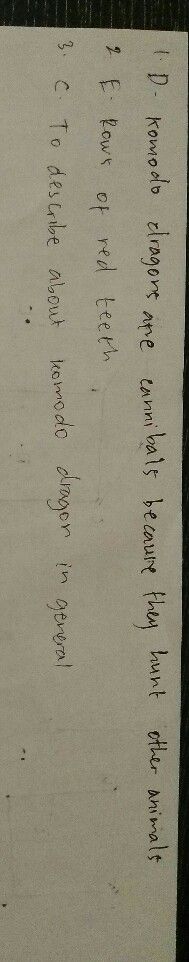 1. D. Komodo dragons are cannibals because they hunt other animals
2. E. Rows of red teeth
3. C. To describe about komodo dragon in general